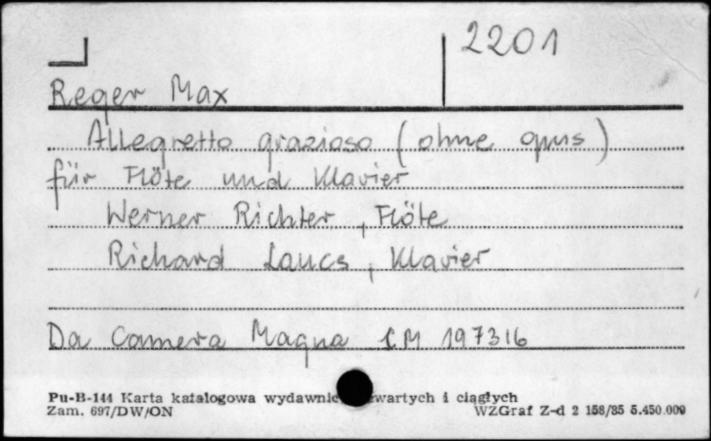 2201
Reger Max
Allegretto grazioso (ohne opus)
für Flöte und Klavier
Werner Richter, Flöte
Richard Laucs, Klavier
Da Camera Magna SM 197316
Pu-B-144 Karta katalogowa wydawnic wartych i ciągłych
Zam. 697/DW/ON WZGraf Z-d 2 158/85 5.450.000